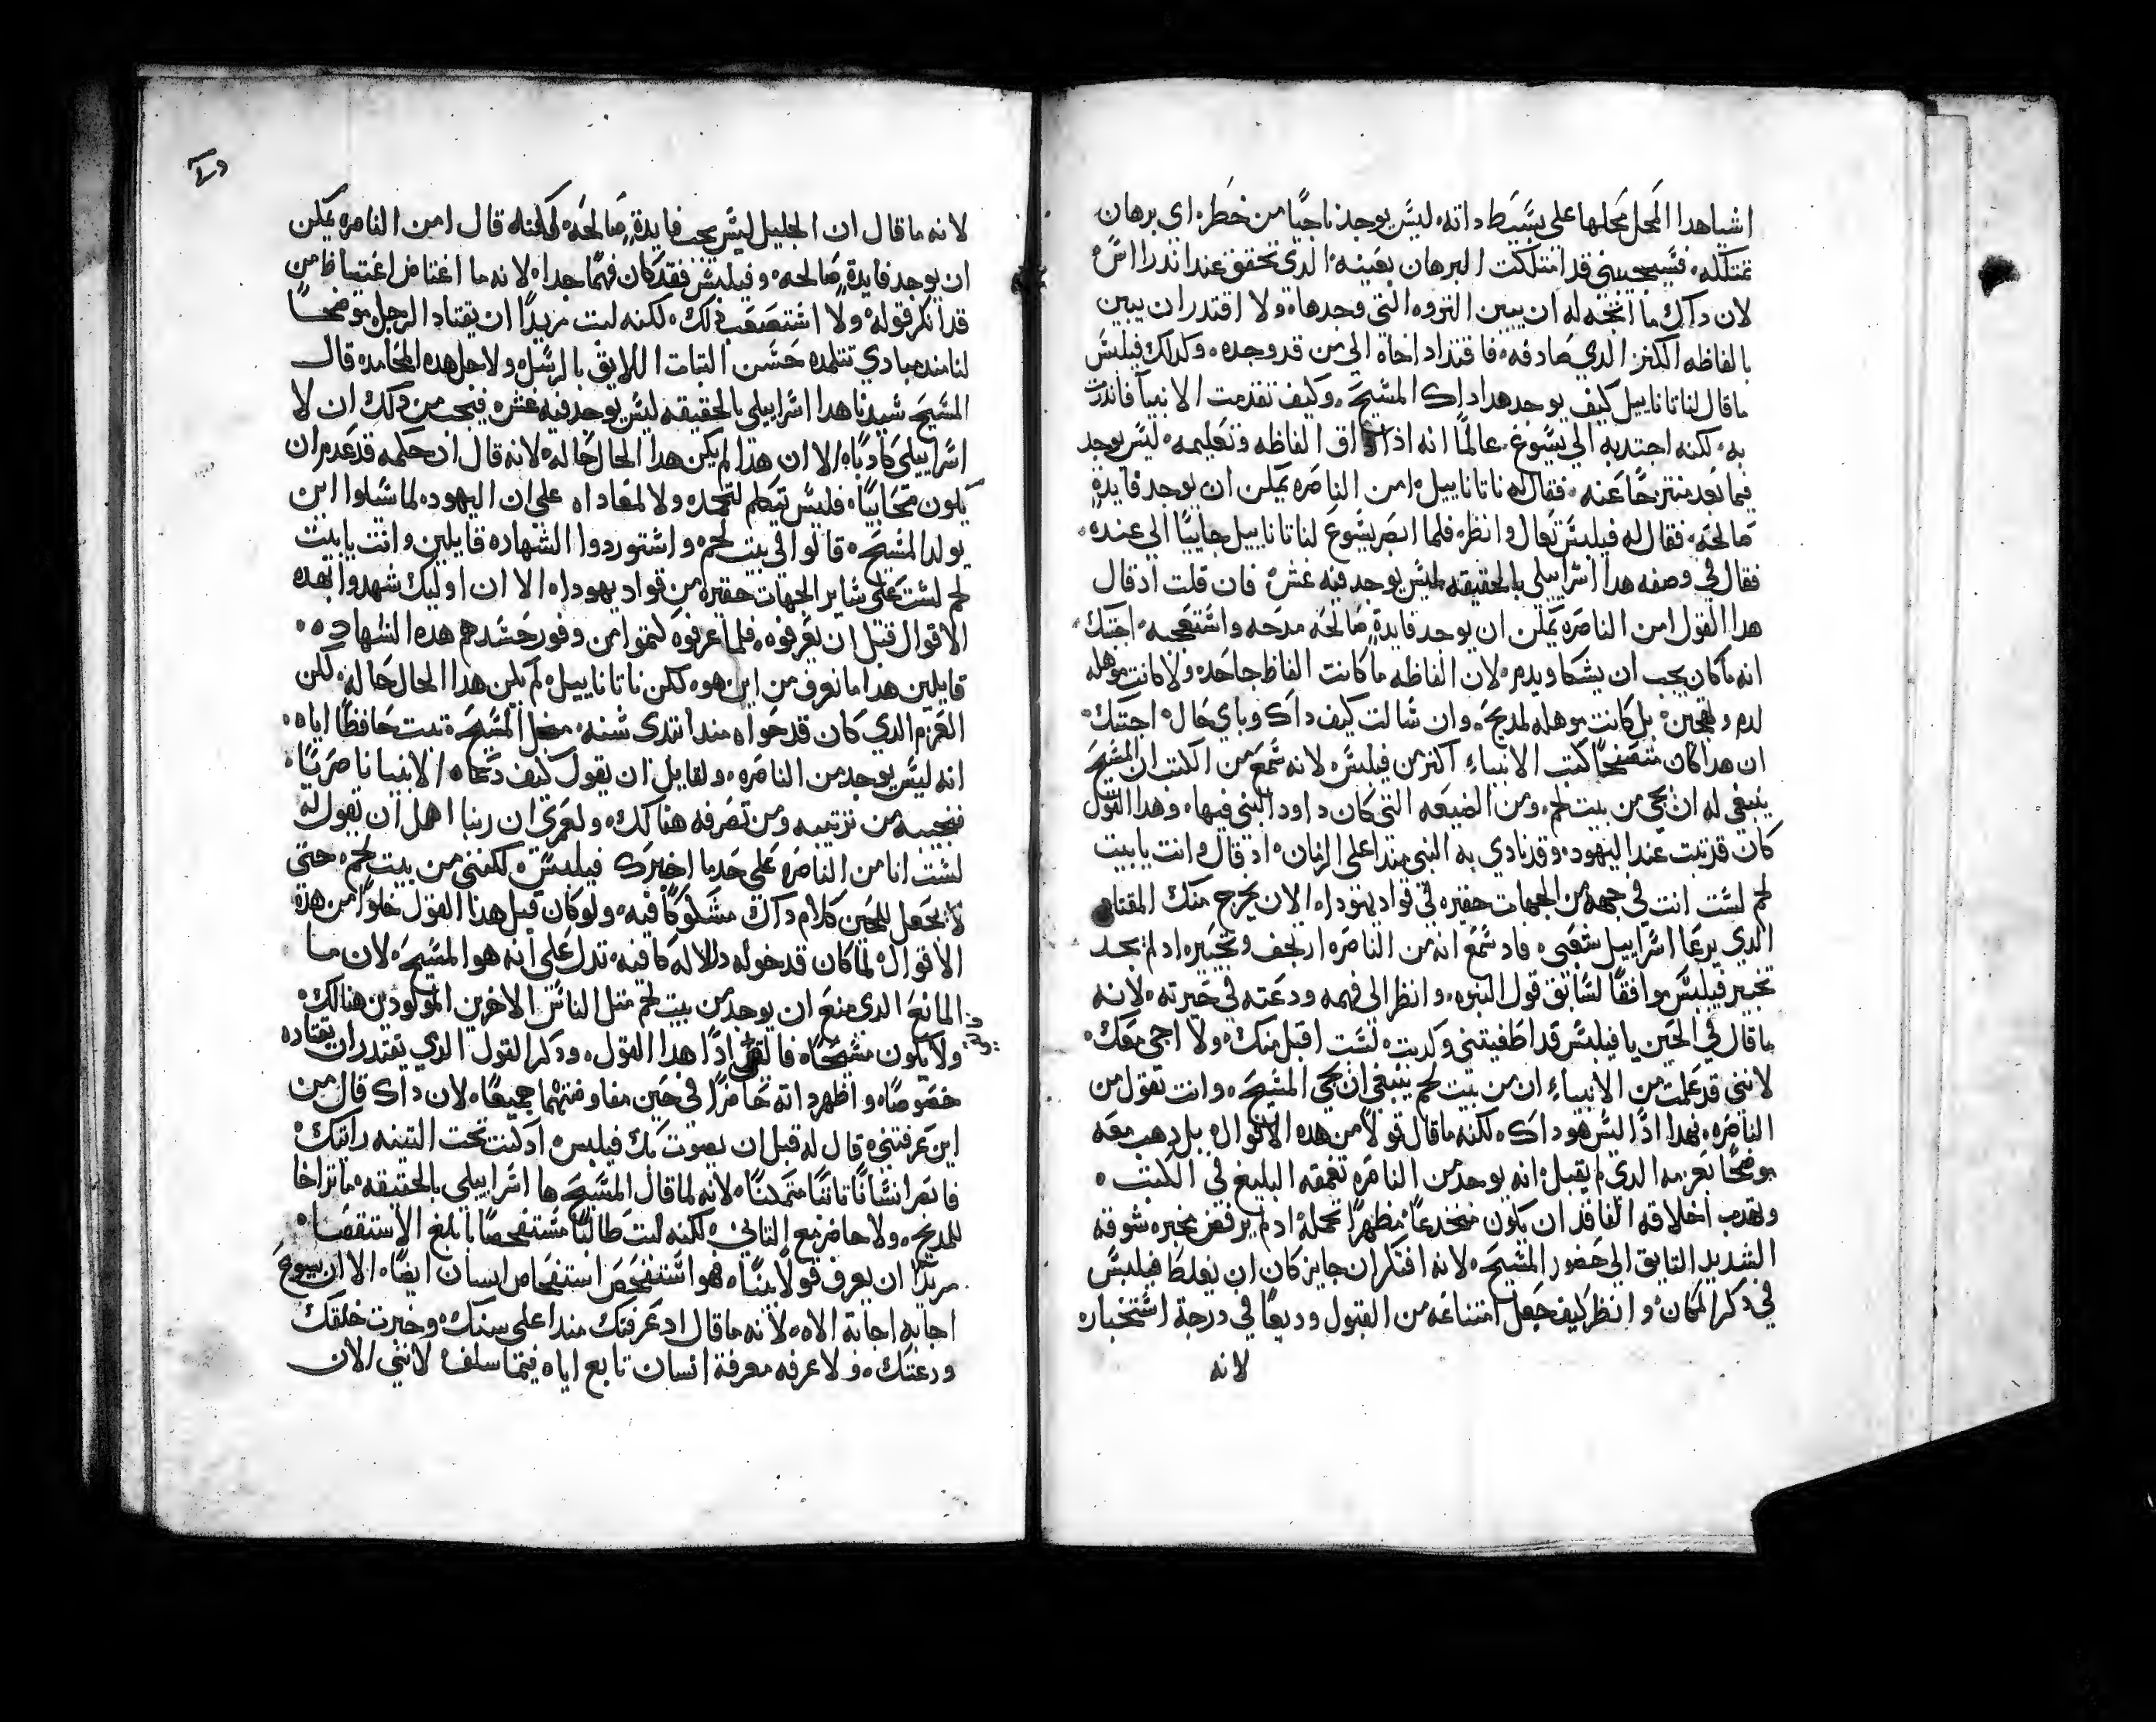 اشيا هدا المحل محلها على بسيط داته ليس يوجد ناجيًا من خطر، اى برهان
تمتلكه، فسيجيبنى قد امتلكت البرهان بعينه الدى تحقق عند اندراس
لان داك ما اتجه له ان يبين التروه التى وجدها، ولا اقتدر ان يبين
بالفاظه الكنز الدي صادفه، فاقتاد اخاه الى من قد وجده، وكدلك فيلبس
ما قال لناتاناييل كيف يوجد هدا داك المسيح، وكيف تقدمت الانبيا فاندرت
به، لكنه اجتدبه الي يسوع، عالمًا انه ادا داق الفاظه وتعليمه، ليس يوجد
فيما بعد منتزحًا عنه، فقال له ناتاناييل، امن الناصره يمكن ان يوجد فايدةٍ
صالحه، فقال له فيلبس تعال وانظر، فلما ابصر يسوع لناتاناييل جاييًا الي عنده،
فقال في وصفه هدا اسراييلي بالحقيقه ليس يوجد فيه غش، فان قلت اد قال
هدا القول امن الناصره يمكن ان يوجد فايدةٍ صالحه مدحه واستعجبه، اجبتك،
انه ما كان يجب ان يشكا ويدم، لان الفاظه ما كانت الفاظ جاحده ولا كانت موهله
لدم وتهجين، بل كانت موهله لمديح، وان سالت كيف داك وباي حال، اجبتك
ان هدا كان متصفحًا كتب الانبياء اكتر من فيلبس، لانه سمع من الكتب ان المسيح
ينبغي له ان يجي من بيت لحم، ومن الضيعه التى كان داود النبى فيها، وهدا القول
كان قد تبت عند اليهود، وقد نادي به النبى مند اعلى الزمان، اد قال وانت يا بيت
لحم لست انت في جهه من الجهات حقيره في قواد يهودا، الان يخرج منك المقتاد
الدي يرعا اسراييل شعبى، فاد سمع انه من الناصره ارتجف وتحير، اد لم يجد
تخبير فيلبس موافقًا لسابق قول النبوه، وانظر الى فهمه ودعته في حيرته، لانه
ما قال في الحين يا فيلبس قد اطغيتنى وكدبت، لست اقبل منك، ولا اجي معك،
لاننى قد علمت من الانبياء ان من بيت لحم ينبغى ان يجي المسيح، وانت تقول من
الناصره، فهدا ادًا ليس هو داك، لكنه ما قال قولًا من هده الاقوال، بل دهب معه
موضحًا بعزمه الدي لم يقبل انه يوجد من الناصره تعمقه البليغ في الكتب،
وتهدب اخلاقه الفاقد ان يكون منخدعًا، مظهرًا تمحله اد لم يرفض مخبره شوقه
الشديد التايق الى حضور المسيح، لانه افتكر ان جايز كان ان يغلط فيلبس
في دكر المكان، وانظر كيف جعل امتناعه من القبول وديعًا في درجة استخباره
لانه
لانه ما قال ان الجليل ليس يجب فايدةٍ صالحه، لكنه قال امن الناصره يمكن
ان يوجد فايدةٍ صالحه، وفيلبس فقد كان فهمًا جدا، لانه ما اغتاض اغتياظ من
قد انكر قوله، ولا استصعب دلك، لكنه لبت مريدًا ان يقتاد الرجل موضحًا
لنا مند مبادي تتلمده حسن التبات اللايق بالرسل، ولاجل هده المحامده قال
المسيح سيدنا هدا اسراييلي بالحقيقه ليس يوجد فيه غش، فيجب من دلك ان لا
اسراييلي كادبًا، الا ان هدا لم يكن هدا الحال حاله، لانه قال ان حكمه قد عدم ان
يكون محابيًا، فليس تيكلم لتحمده ولا لمعاداه، على ان اليهود، لما سلوا اين
يولد المسيح، قالوا في بيت لحم، واستوردوا الشهاده قايلين وانت يا بيت
لحم لست على ساير الجهات حقيره من قواد يهودا، الا ان اوليك شهدوا بهده
الاقوال قبل ان يعرفوه، فلما عرفوه كتموا من وفور حسدهم هده الشهاده،
قايلين هدا ما نعرف من اين هو، لكن ناتاناييل، لم يكن هدا الحال حاله، لكن
العزم الدي كان قد حواه مند ابتدى شنه من اجل المسيح، تبت حافظًا اياه،
انه ليس يوجد من الناصره، ولقايل ان يقول كيف دعاه الانبيا ناصريًا،
فنجيبه من تربيته ومن تصرفه هناك، ولعمري ان ربنا اهمل ان يقول له
لست انا من الناصره على حد ما اخبرك فيلبس، لكننى من بيت لحم، حتى
لا يجعل للحين كلام داك مشكوكًا فيه، ولو كان قبل هدا القول خلوًا من هده
الاقوال، لما كان قد خوله دلاله كافيه، تدل على انه هو المسيح، لان مـا
المانع الدى منع ان يوجد من بيت لحم متل الناس الاخرين المولودين هنالك
ولا يكون مسيحًا، فالقى ادًا هدا القول، ودكر القول الدي يقتدر ان يقتاده
خصوصًا، واظهر داته حاضرًا في حين مفاوضتهما جميعًا، لان داك قال من
اين عرفتنى، قال له قبل ان يصوت بك فيلبس، اد كنت تحت التينه رايتك
فابصر انسانًا تابتًا متمكنًا، لانه لما قال المسيح ها اسراييلي بالحقيقه، ما تراخا
للمديح، ولا حاضر مع التانى، لكنه لبت طالبًا مستفحصًا بابلغ الاستقصا
مريدًا ان يعرف قولًا بينًا، فهو استفحص استفحاص انسان ايضًا، الا ان يسوع
اجابه اجابة الاه، لانه ما قال اد عرفتك مند اعلى سنك، وخبرت خلقك
ودعتك، ولا عرفه معرفة انسان تابع اياه فيما سلف، لاننى الان